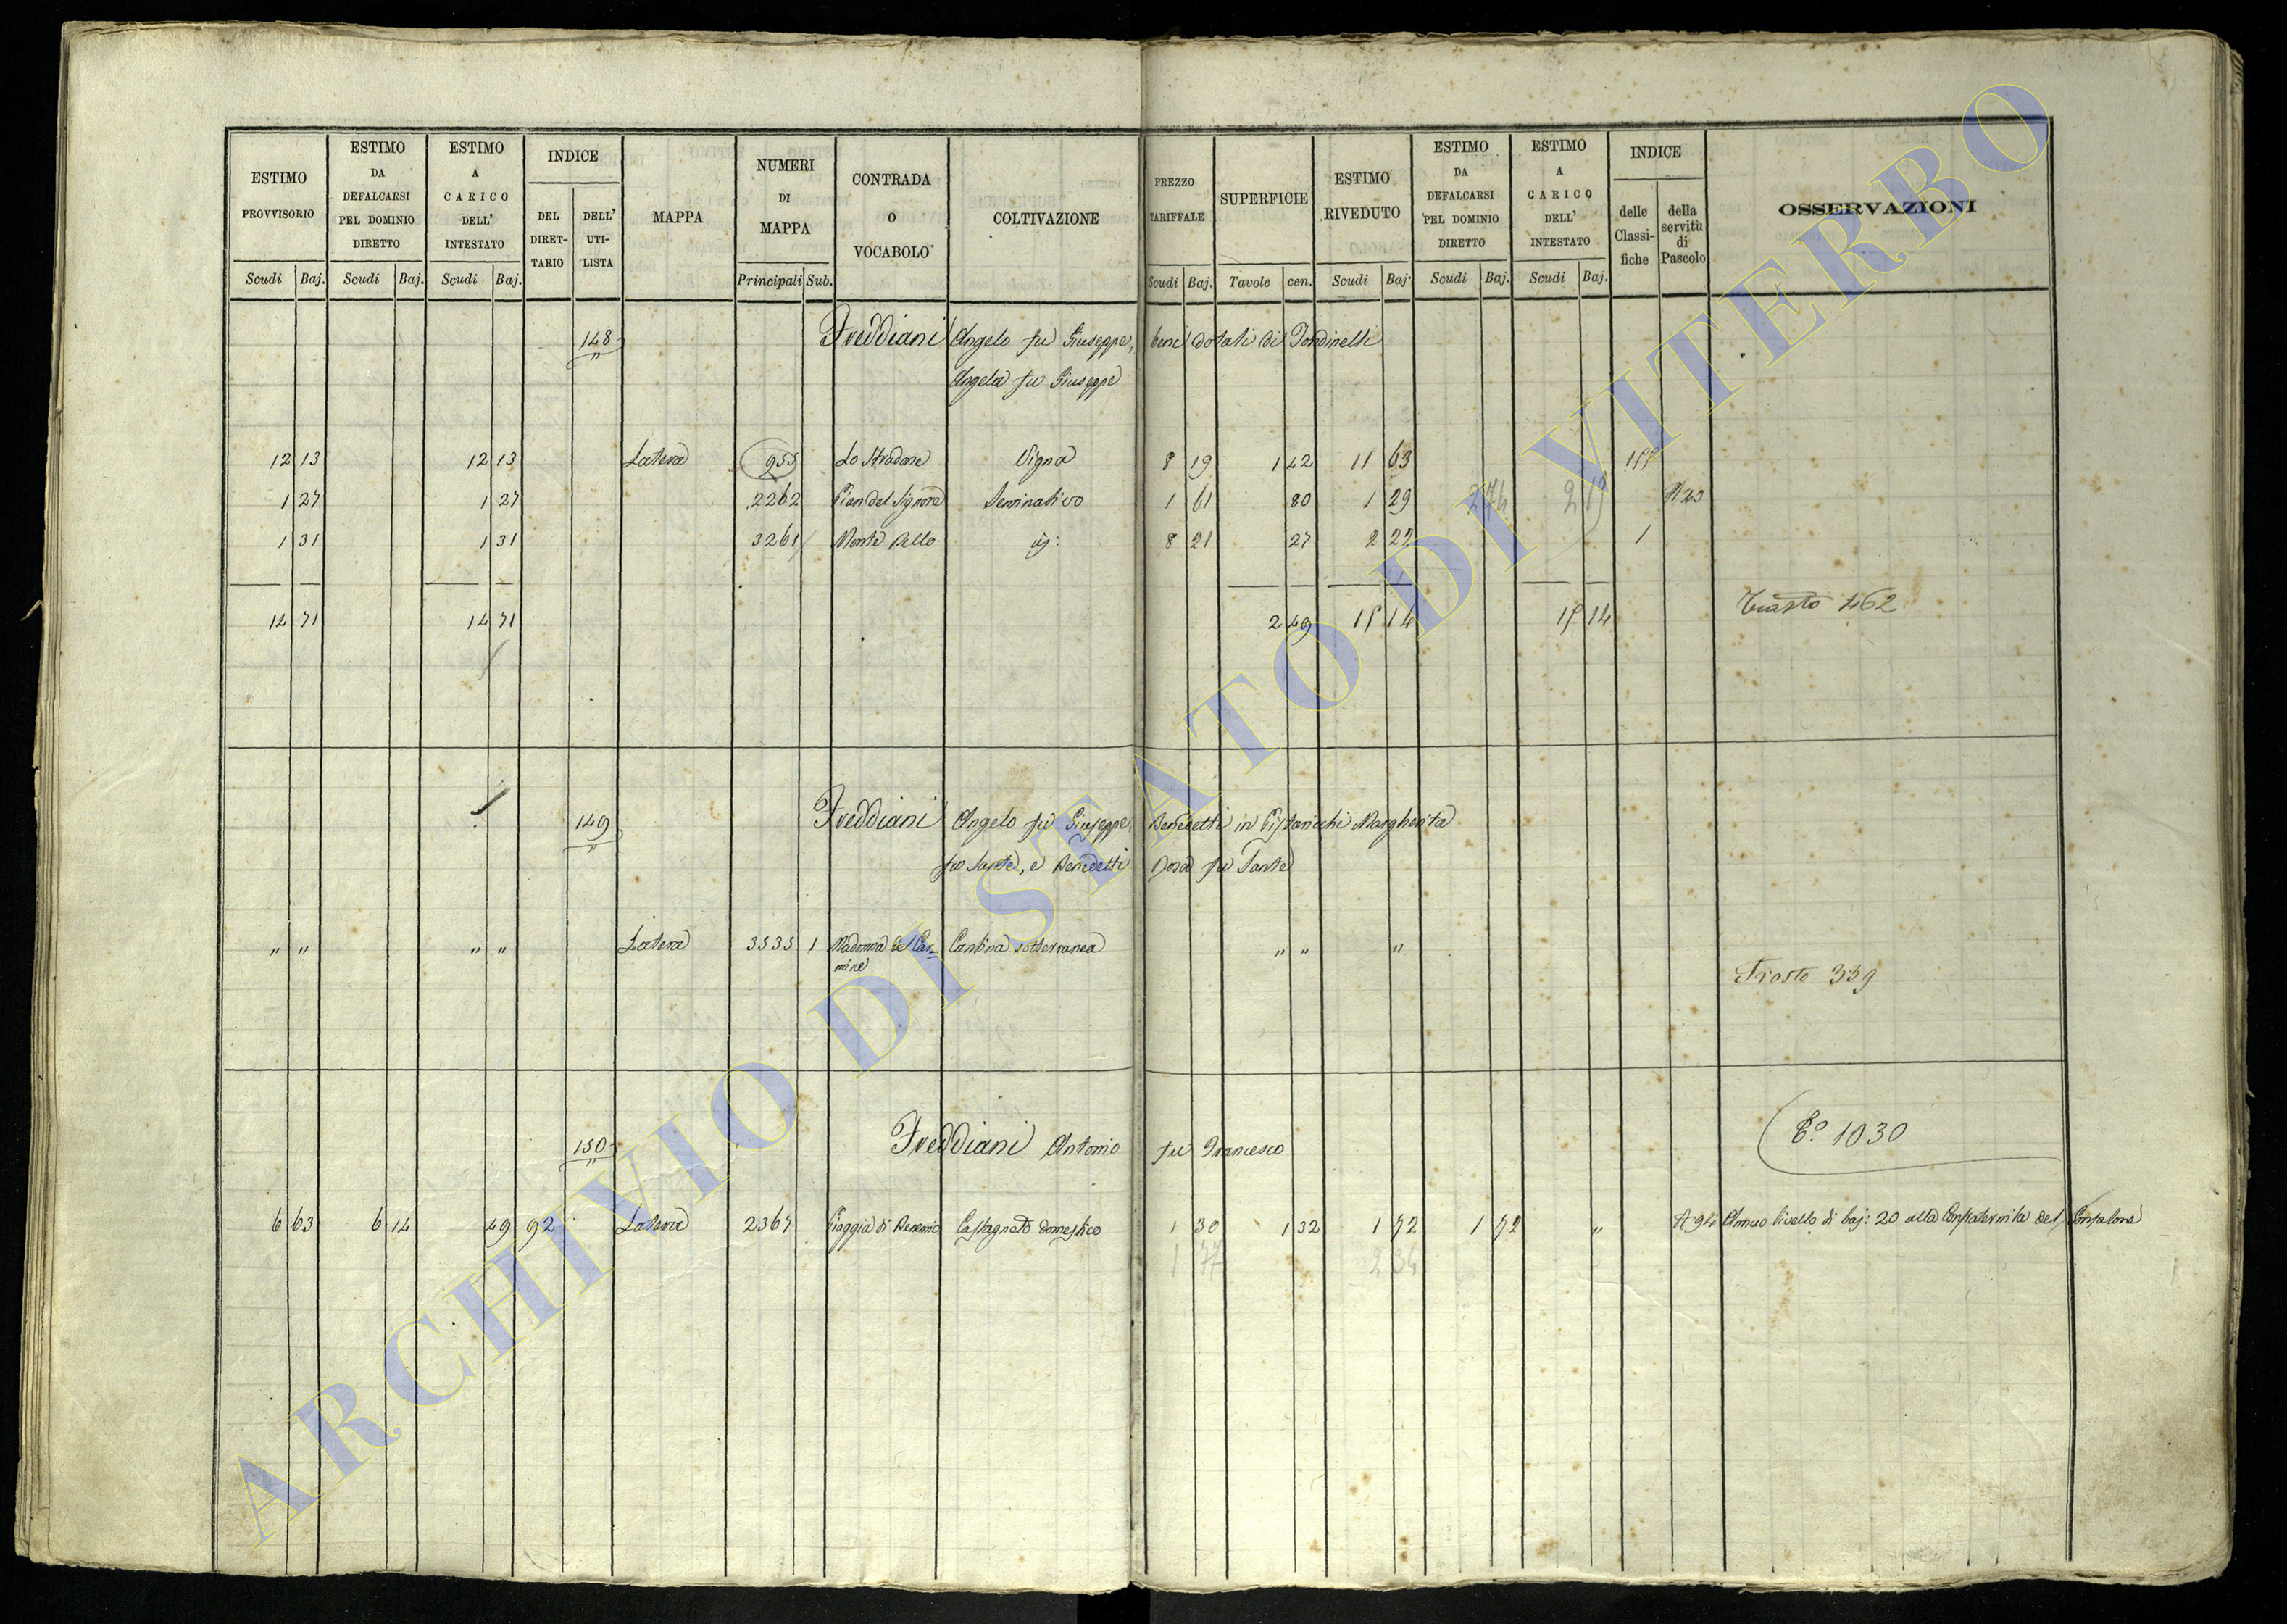 ESTIMO PROVVISORIO Scudi Baj.
ESTIMO DA DEFALCARSI PEL DOMINIO DIRETTO Scudi Baj.
ESTIMO A CARICO DELL' INTESTATO Scudi Baj.
INDICE DEL DIRET-TARIO DELL' UTI-LISTA
MAPPA
NUMERI DI MAPPA Principali Sub.
CONTRADA O VOCABOLO
COLTIVAZIONE
PREZZO TARIFFALE Scudi Baj.
SUPERFICIE Tavole cen.
ESTIMO RIVEDUTO Scudi Baj.
ESTIMO DA DEFALCARSI PEL DOMINIO DIRETTO Scudi Baj.
ESTIMO A CARICO DELL' INTESTATO Scudi Baj.
INDICE delle Classi-fiche della servitù di Pascolo
OSSERVAZIONI
148 Freddiani Angelo fu Giuseppe, beni dotali di
Angela fu Giuseppe
12 13 12 13 Latera 955 Lo Stradone Vigna 8 19 1 42 11 63
1 27 1 27 2262 Pian del Signore Seminativo 1 61 80 1 29
1 31 1 31 3261 Monte Bello id: 8 21 27 2 22 1
14 71 14 71 2 49 15 14 15 14
462
149 Freddiani Angelo fu Giuseppe, Benedetti in Margherita
fu Sante, e Benedetti Rosa fu Sante
" " " " Latera 3535 1 Madonna del Car- Cantina sotterranea " " "
mine
339
E.° 1030
150 Freddiani Antonio fu Francesco
6 63 6 14 49 92 Latera 2367 Piaggia di Castagnato domestico 1 30 1 32 1 72 1 72 " A 94 Annuo livello di baj: 20 alla Confraternita del Gonfalone
1 77 2 34
ARCHIVIO DI STATO DI VITERBO